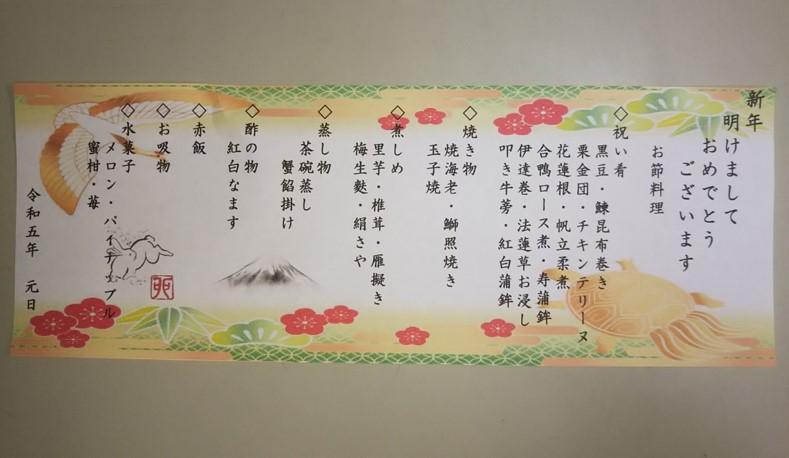 新年
明けまして
おめでとう
ございます
お節料理
◇祝い肴
黒豆・鰊昆布巻き
栗金団・チキンテリーヌ
花蓮根・帆立柔煮
合鴨ロース煮・寿蒲鉾
伊達巻・法蓮草お浸し
叩き牛蒡・紅白蒲鉾
◇焼き物
焼海老・鰤照焼き
玉子焼
◇煮しめ
里芋・椎茸・雁擬き
梅生麩・絹さや
◇蒸し物
茶碗蒸し
蟹餡掛け
◇酢の物
紅白なます
◇赤飯
◇お吸物
◇水菓子
メロン・パイナップル
蜜柑・苺
卯
令和五年 元日